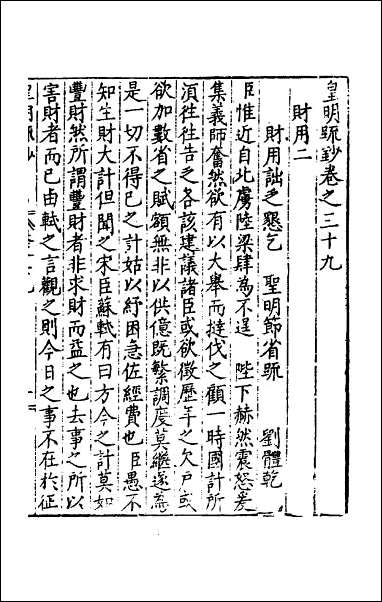 皇明疏鈔卷之三十九
財用二
財用詘乏懇乞 聖明節省疏 劉體乾
臣惟近自北虜陸梁肆為不逞 陛下赫然震怒爰
集義師奮然欲有以大舉而撻伐之顧一時國計所
湏徃徃告乏各該建議諸臣或欲徵歷年之欠戶或
欲加數省之賦額無非以供億既繁調度莫繼遂為
是一切不得已之計姑以紓困急佐經費也臣愚不
知生財大計但聞之宋臣蘇軾有曰方今之計莫如
豐財然所謂豐財者非求財而益之也去事之所以
害財者而已由軾之言觀之則今日之事不在於征